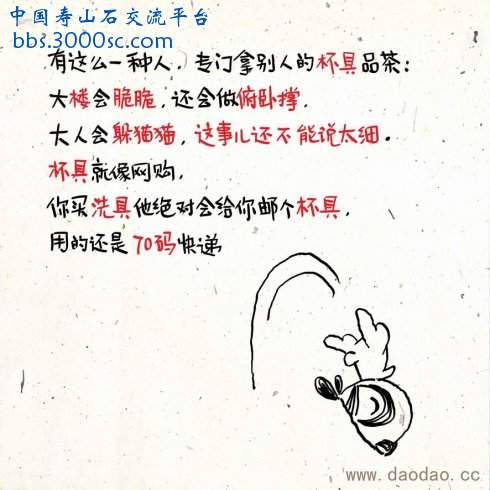 中国寿山石交流平台
bbs.3000sc.com
有这么一种人，专门拿别人的杯具品茶：
大楼会脆脆，还会做俯卧撑，
大人会躲猫猫，这事儿还不能说太细。
杯具就像网购，
你买洗具他绝对会给你邮个杯具，
用的还是70码快递
www.daodao.cc